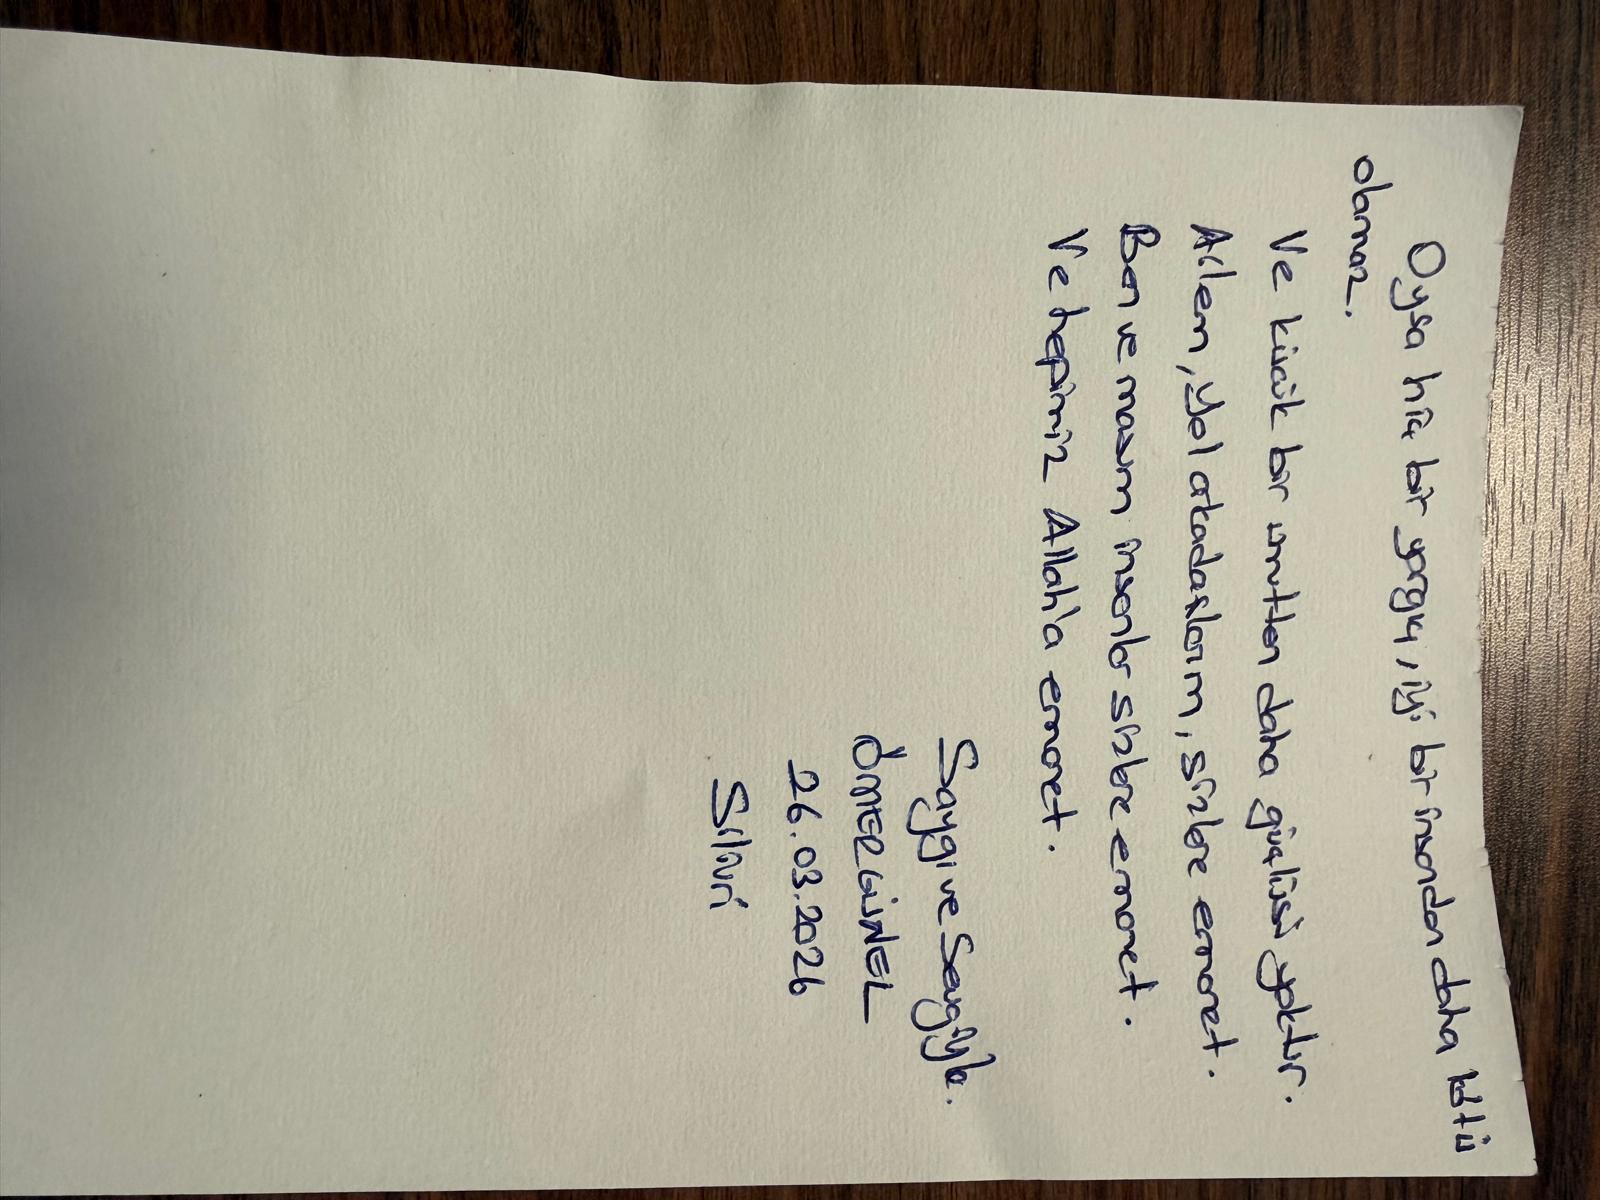 Oysa hiç bir yargıç, iyi bir insandan daha kötü
olamaz.
Ve küçük bir umutten daha güçlüsü yoktur.
Ailem, yol arkadaşlarım, sizlere emanet.
Ben ve masum insanlar sizlere emanet.
Ve hepimiz Allah'a emanet.
Saygı ve Sevgiyle.
ÖMER GÜNEL
26.03.2026
Silivri